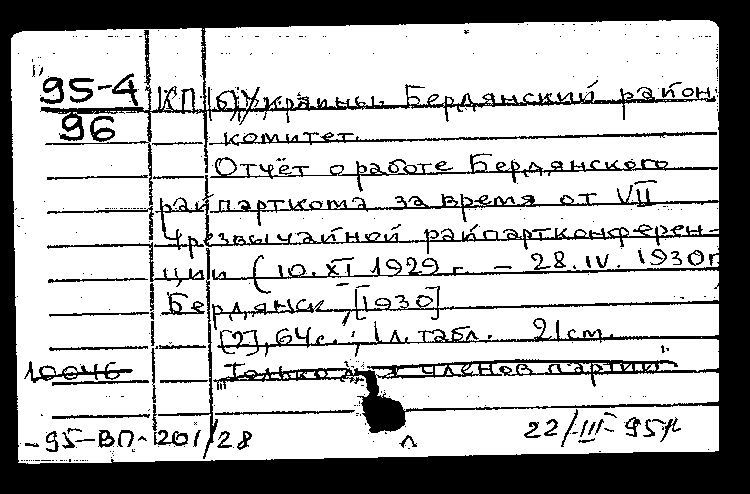 95-4 КП(б)Украины. Бердянский район.
96 комитет.
Отчёт о работе Бердянского
райпарткома за время от VII
Чрезвычайной райпартконферен-
ции (10.XI 1929 г. – 28.IV. 1930г
Бердянск, [1930]
[2], 64с.; 1 л. табл. 21см.
10046 "Только для членов партии"
-95-ВП-201/28 22/III-95г